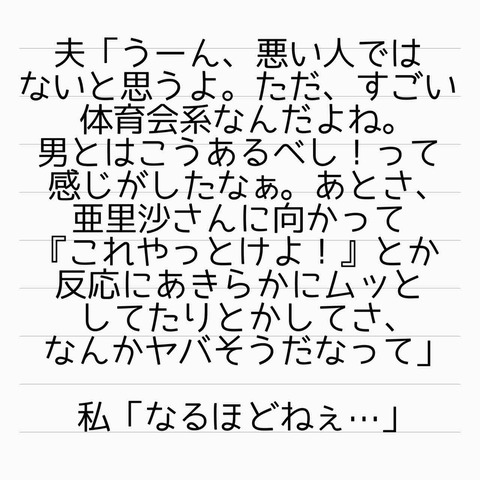 夫「うーん、悪い人では
ないと思うよ。ただ、すごい
体育会系なんだよね。
男とはこうあるべし！って
感じがしたなぁ。あとさ、
亜里沙さんに向かって
『これやっとけよ！』とか
反応にあきらかにムッと
してたりとかしてさ、
なんかヤバそうだなって」
私「なるほどねぇ…」